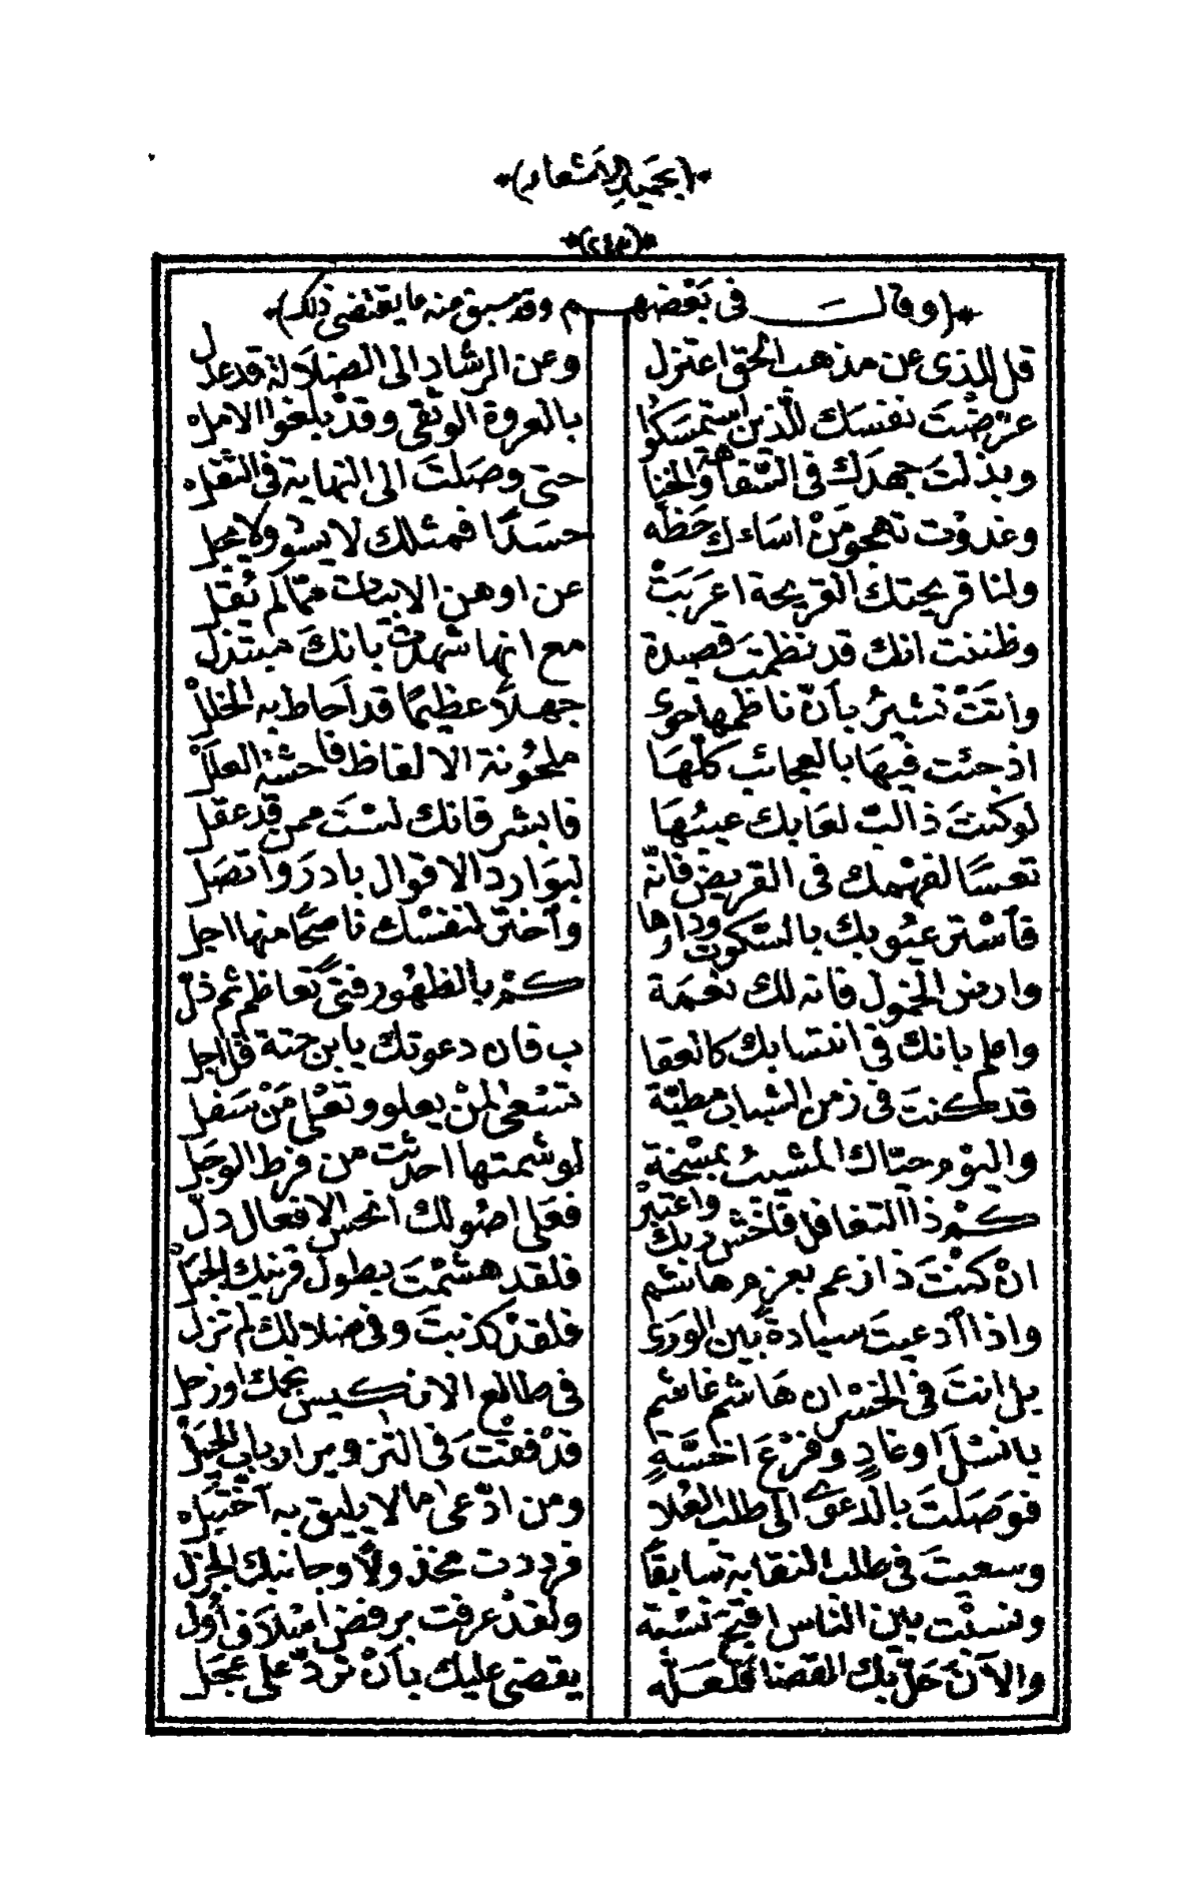 *(بحميد الاشعار)*
*(٢٤٣)*
*(وقالــ في بعضهم وقد سبق منه ما يقتضى ذلك)*
قل للذى عن مذهب الحق اعتزل وعن الرشاد الى الضلالة قد عدل
عرّضت نفسك للذين استمسكوا بالعروة الوثقى وقد بلغوا الامل
وبذلت جهدك فى السّفاهة والخنا حتى وصلت الى النهاية فى الثقل
وغدوت تهجو مَنْ اساءك حَظّه حسَدًا فمثلك لا يسود ولا يجل
ولنا قريحتك القريحة اعربَتْ عن اوهن الابيات ممّا لم تُقل
وظننت انك قد نظمت قصيدة مع انها شهدت بانك مبتذل
واتَتْ تشيرُ بأنّ ناظمها حوى جهلًا عظيمًا قد احاط به الخلل
اذ جئت فيها بالعجائب كلّها ملحونة الالفاظ فاحشة العلل
لو كنتَ ذا لبّ لعابك عيبُهَا فابشر فانك لسْتَ ممن قد عقل
تعسًا لفهمك فى القريض فانّه لبوارد الاقوال بادرَ واتصل
فأستر عيُوبك بالسّكوت ودارها وأختر لنفسك ناصحًا منها اجل
وارض الخمول فانه لك نعمة كمْ بالظهُور فتىً تعاظم ثم ذلّ
واعلم بانك فى انتسابك كالعقا ب فان دعوتك يا بن جنة قل اجل
قد كنتَ فى زمن الشباب مطيّة تسْعى لمنْ يعلو وتعْلى مَنْ سَفل
واليوْم حيّاك المشيبُ بمسْخة لو شمتها احدثت من فرط الوجل
كمْ ذا التغافل فاخش ربك واعتبرْ فعَلى اصُولك انحس الافعال دلّ
انْ كنْتَ ذا زعم بعزم هاشم فلقد هشمْتَ بطول قرنيك الجبلْ
واذا أدعيتَ سيادةً بين الورى فلقدْ كذبتَ وفى ضلالك لم تزل
بل انتَ فى الخسْران هَاشم غاشم فى طالع الانكيس نجمك او زحل
يا نسْلَ اوغادٍ وفرْعَ اخسّةٍ قدْ فقْتَ فى التزوير ارباب الحيلْ
فوصَلتَ بالدعوى الى طلب العُلا ومن ادّعى ما لا يليق به أختبل
وسعيتَ فى طلب النقابة سابقًا فرددت مخذولًا وجانبك الجزل
ونسبْت بين الناس اقبحَ نسْبة ولقدْ عرفت برفض اسْلاف أول
والآنَ حَلّ بك القضا فلعَلّه يقضى عليك بأنْ تردّ على عجَل